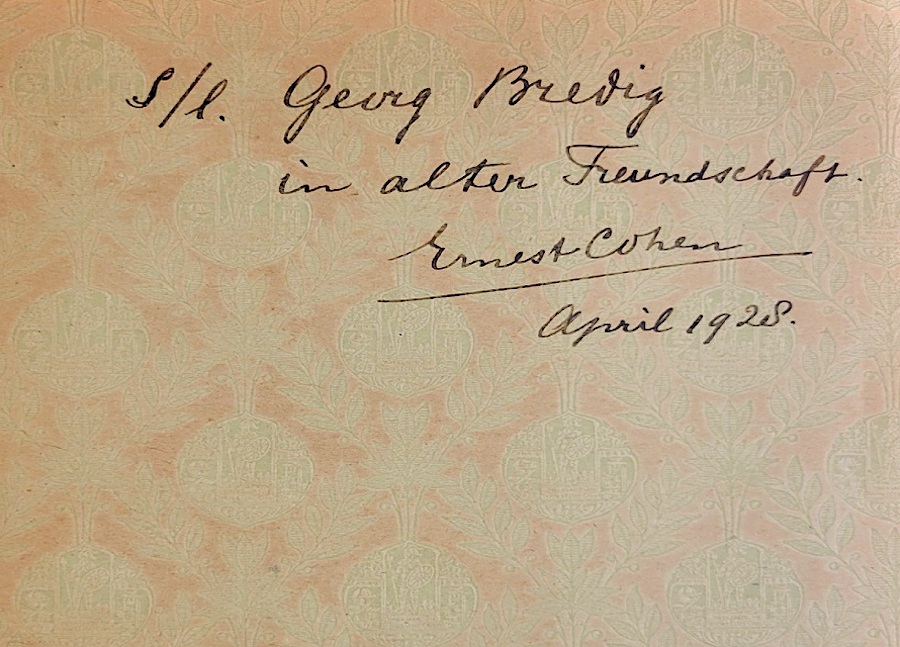 S/l. Georg Bredig
in alter Freundschaft.
Ernest Cohen
April 1928.